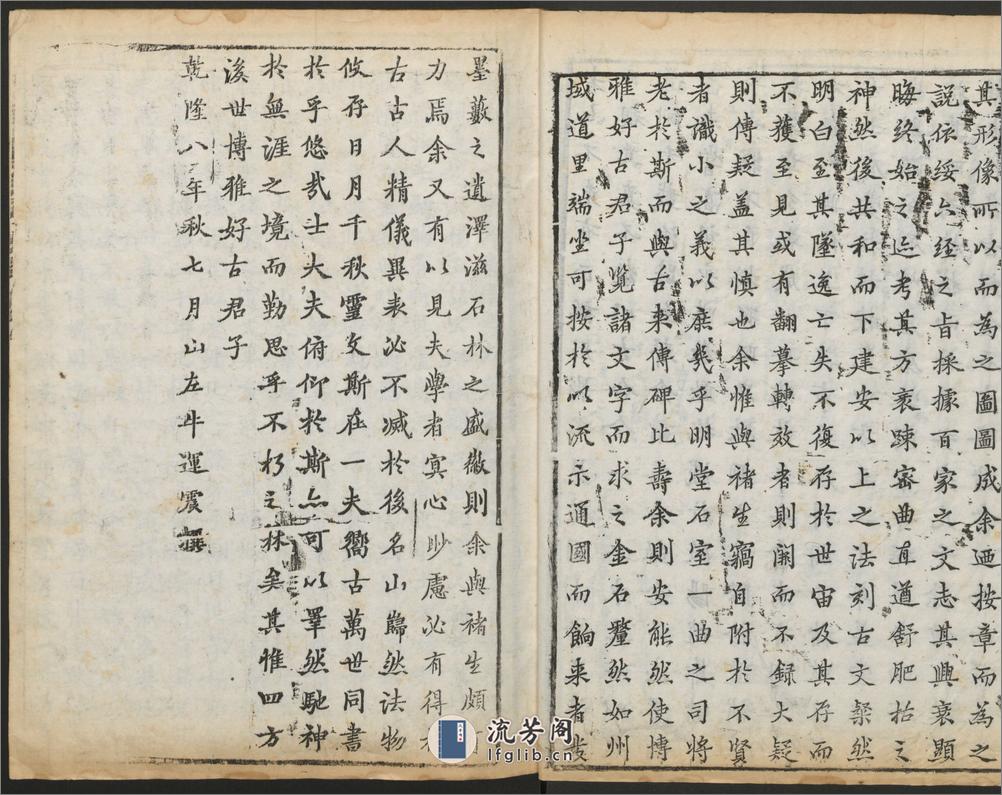 其形像所以而為之圖圖成余迺按章而為之
說依綏六经之㫖採據百家之文志其興衰顯
晦終始之迹考其方袤踈宻曲直遒舒肥拈之
神然後共和而下建安以上之法刻古文粲然
明白至其墜逸亡失不復存於世宙及其存而
不獲至見或有翻摹轉效者則闕而不録大疑
則傳疑盖其慎也余惟與褚生竊自附於不賢
者識小之義以庶幾乎明堂石室一曲之司將
老於斯而與古来傳碑比壽余則安能然使博
雅好古君子覽諸文字而求之金石釐然如州
域道里端坐可按於以流示通國而餉来者發
墨藪之遺澤滋石林之盛徽則余與褚生頗
力焉余又有以見夫學者㝠心眇慮必有得
古古人精儀異表必不減於後名山巋然法物
攸存日月千秋靈文斯在一夫嚮古萬世同書
於乎悠哉士大夫俯仰於斯亦可以睪然馳神
於無涯之境而勤思乎不朽之林矣其惟四方
後世博雅好古君子
乾隆八年秋七月山左牛運震撰
流芳阁
lfglib.cn